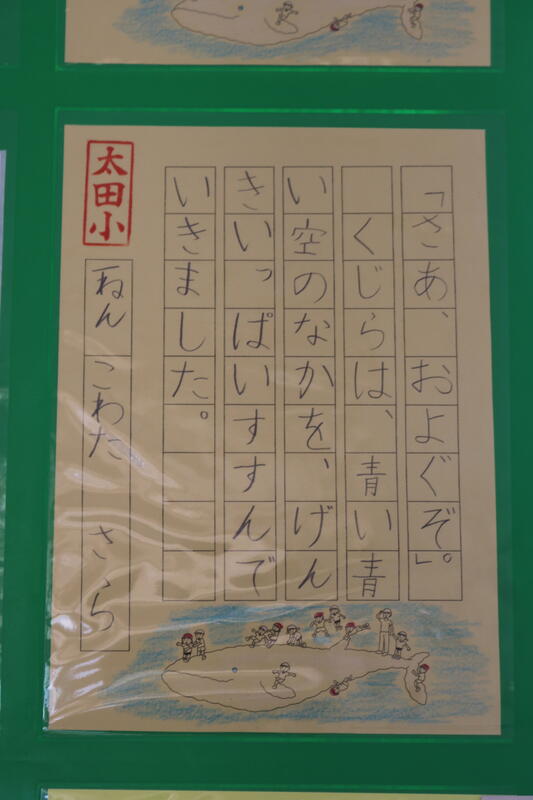 「さあ、およぐぞ。」
くじらは、青い青
い空のなかを、げん
きいっぱいすすんで
いきました。
太田小
一ねん こわた さら